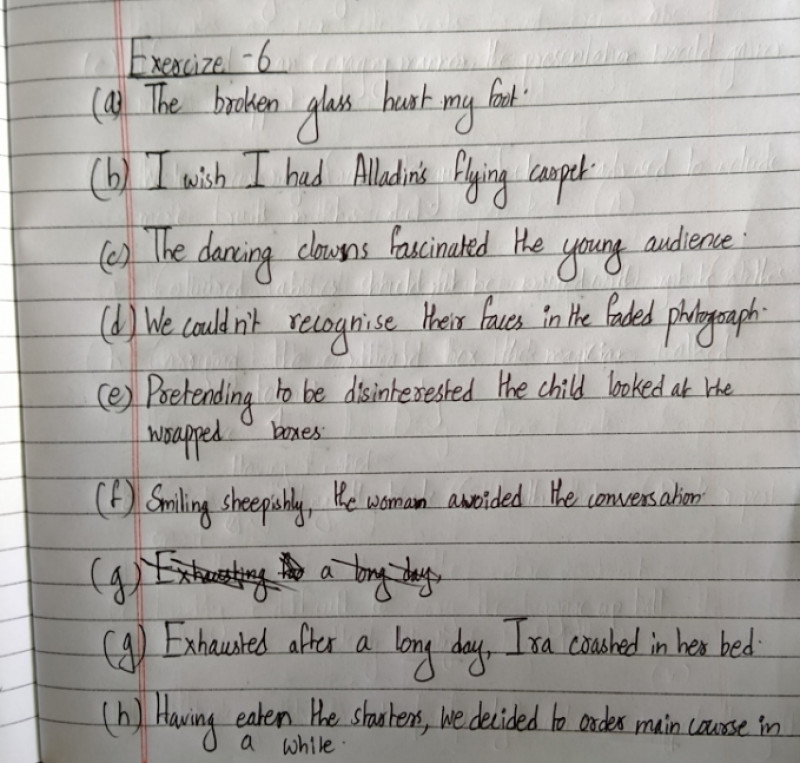 Exercize - 6
(a) The broken glass hurt my foot.
(b) I wish I had Alladin's flying carpet.
(c) The dancing clowns fascinated the young audience.
(d) We couldn't recognise their faces in the faded photograph.
(e) Pretending to be disinterested the child looked at the
wrapped boxes.
(f) Smiling sheepishly, the woman avoided the conversation.
(g) Exhausting a long day,
(g) Exhausted after a long day, Ira crashed in her bed.
(h) Having eaten the starters, we decided to order main course in
a while.